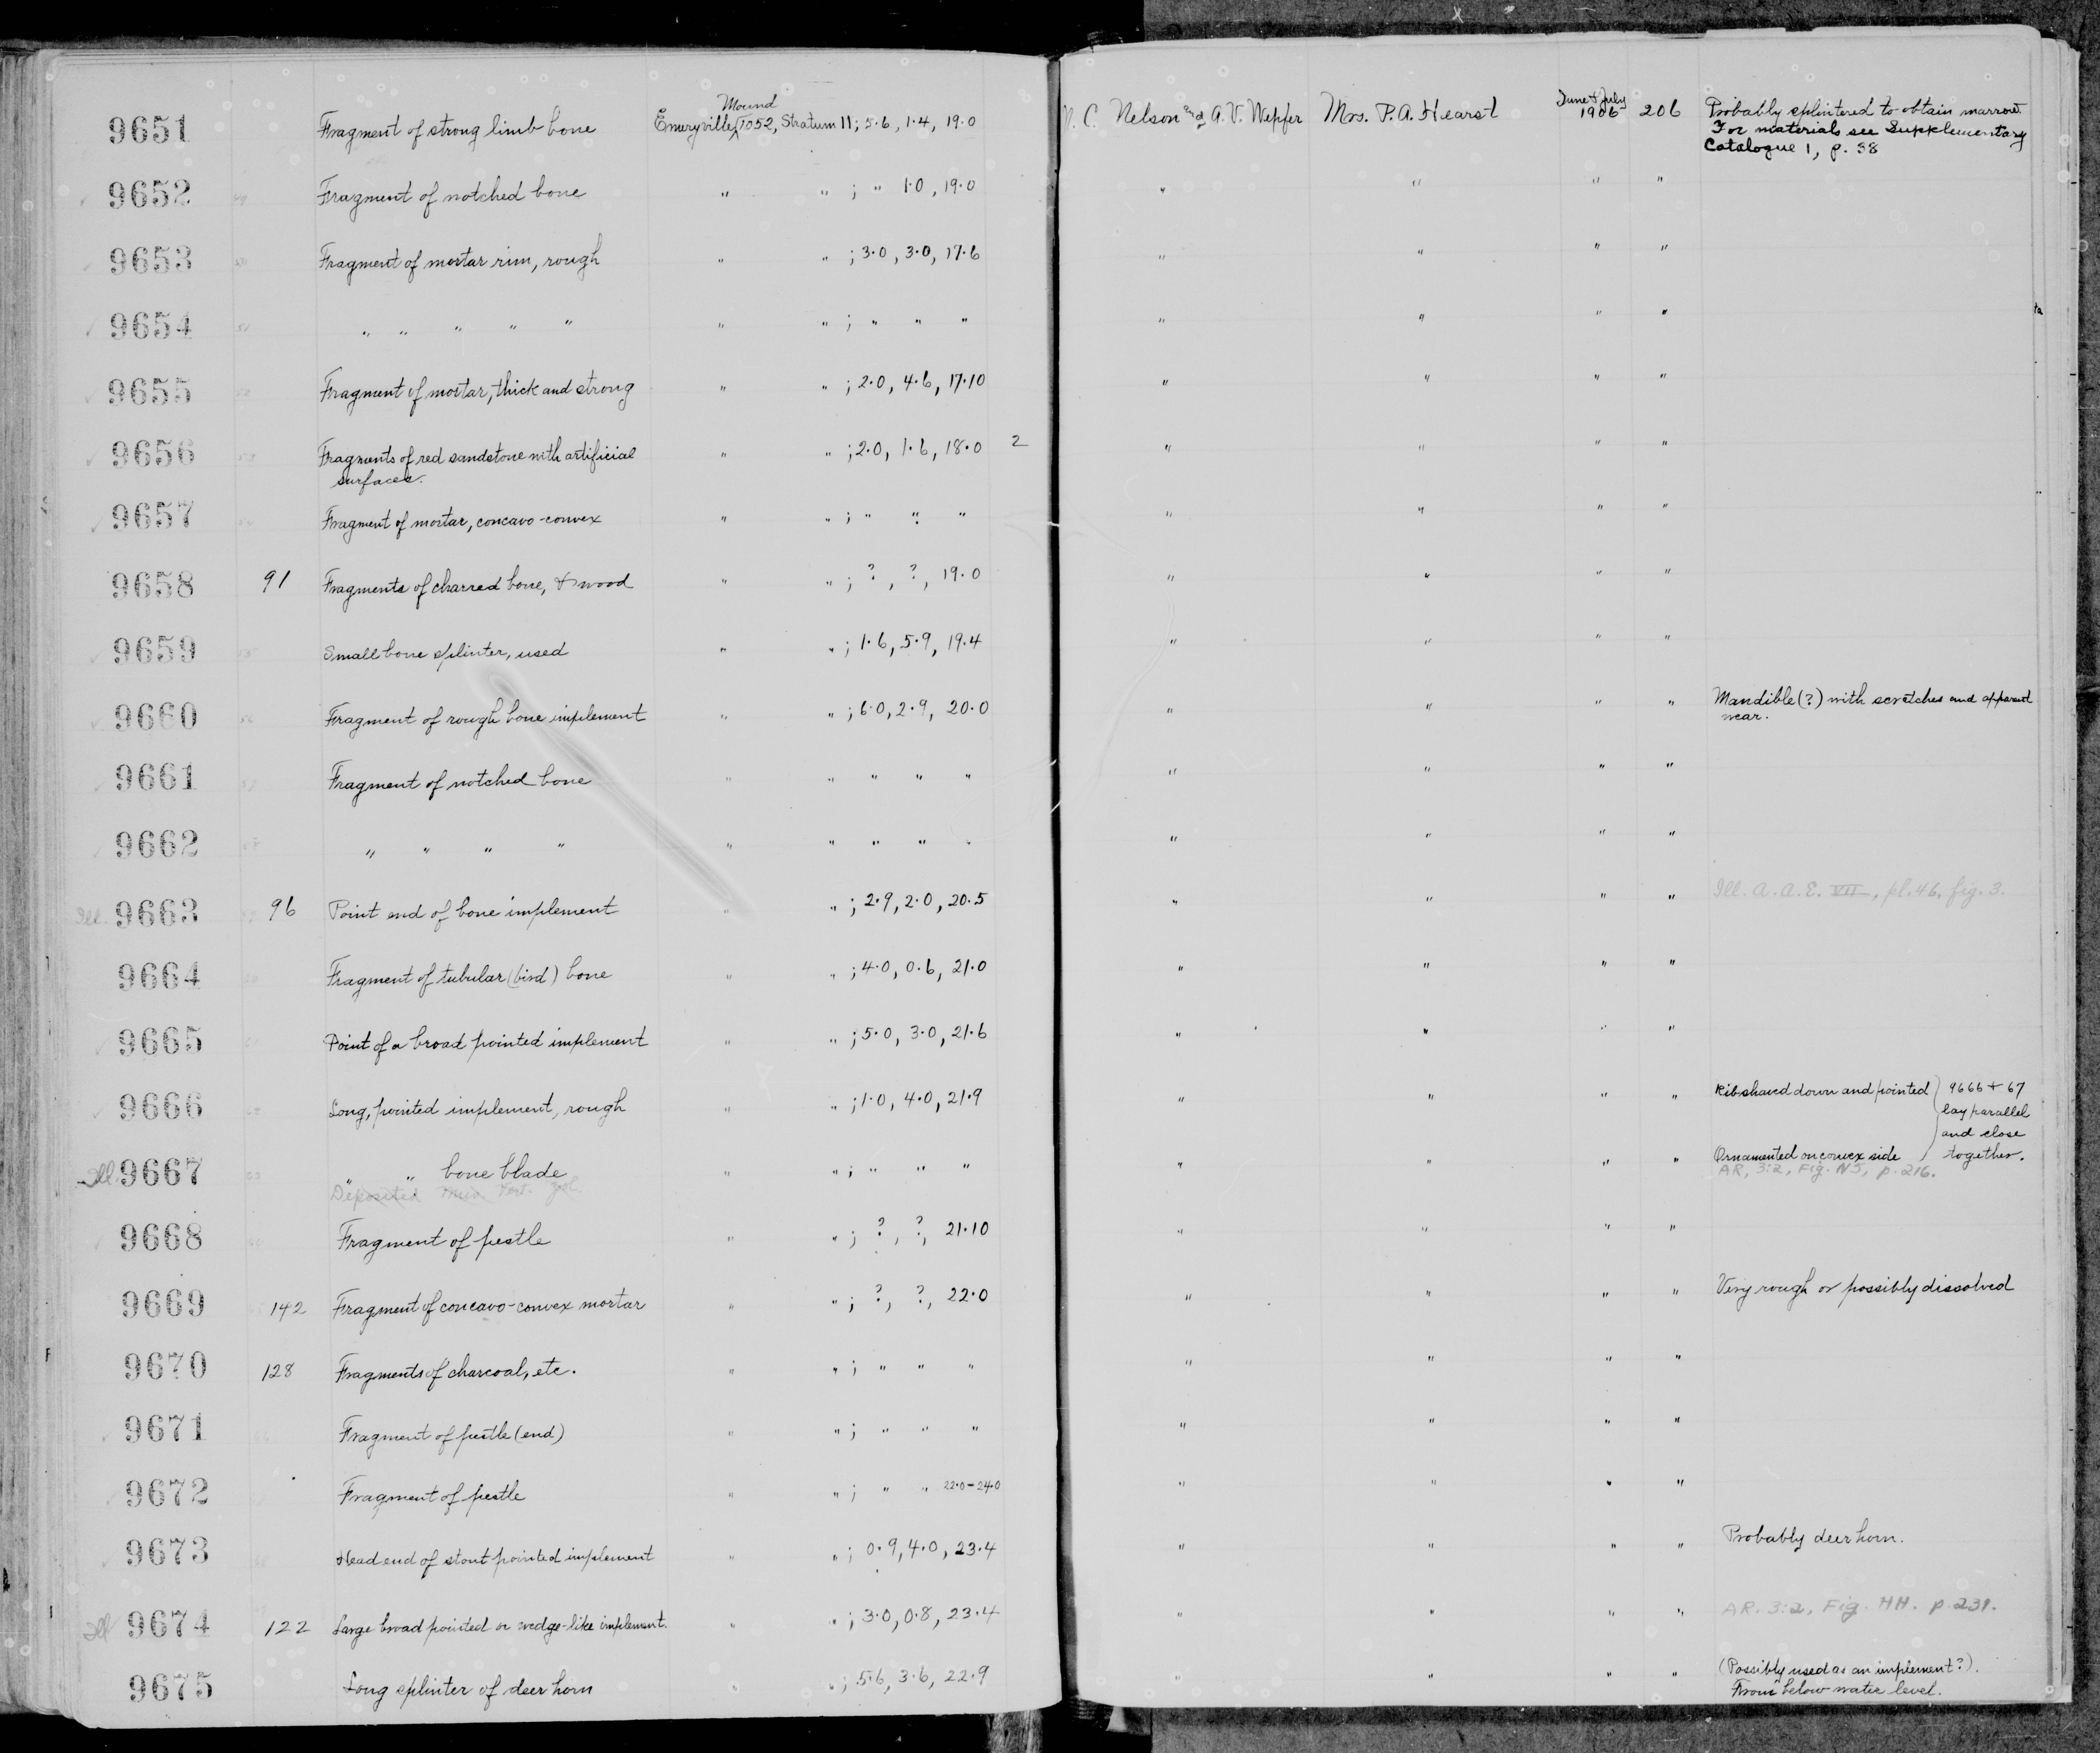 9651 Fragment of strong limb bone Emeryville, Mound 1052, Stratum 11; 5.6, 1.4, 19.0 N. C. Nelson and A. V. Wepfer Mrs. P. A. Hearst June & July 1906 206 Probably splintered to obtain marrow.
For materials see Supplementary
Catalogue 1, p. 38
9652 Fragment of notched bone " " ; " 1.0, 19.0 " " " "
9653 Fragment of mortar rim, rough " " ; 3.0, 3.0, 17.6 " " " "
9654 " " " " " " " ; " " " " " " "
9655 Fragment of mortar, thick and strong " " ; 2.0, 4.6, 17.10 " " " "
9656 Fragments of red sandstone with artificial " " ; 2.0, 1.6, 18.0 2 " " " "
surfaces.
9657 Fragment of mortar, concavo-convex " " ; " " " " " " "
9658 91 Fragments of charred bone, & wood " " ; ?, ?, 19.0 " " " "
9659 Small bone splinter, used " " ; 1.6, 5.9, 19.4 " " " "
9660 Fragment of rough bone implement " " ; 6.0, 2.9, 20.0 " " " " Mandible (?) with scratches and apparent
wear.
9661 Fragment of notched bone " " " " " " " " "
9662 " " " " " " " " " " " " "
Ill. 9663 96 Point end of bone implement " " ; 2.9, 2.0, 20.5 " " " " Ill. A. A. E. VII, pl. 46, fig. 3.
9664 Fragment of tubular (bird) bone " " ; 4.0, 0.6, 21.0 " " " "
9665 Point of a broad pointed implement " " ; 5.0, 3.0, 21.6 " " " "
9666 Long, pointed implement, rough " " ; 1.0, 4.0, 21.9 " " " " Rib shaved down and pointed 9666 + 67
lay parallel
and close
Ill 9667 " " bone blade " " ; " " " " " " " Ornamented on convex side together.
Deposited Mus. AR, 3:2, Fig. N5, p. 216.
9668 Fragment of pestle " " ; ?, ?, 21.10 " " " "
9669 142 Fragment of concavo-convex mortar " " ; ?, ?, 22.0 " " " " Very rough or possibly dissolved
9670 128 Fragments of charcoal, etc. " " ; " " " " " " "
9671 Fragment of pestle (end) " " ; " " " " " " "
9672 Fragment of pestle " " ; " " 22.0-24.0 " " " "
9673 Head end of stout pointed implement " " ; 0.9, 4.0, 23.4 " " " " Probably deer horn.
Ill 9674 122 Large broad pointed or wedge-like implement. " " ; 3.0, 0.8, 23.4 " " " " AR. 3:2, Fig. HH. p 231.
9675 Long splinter of deer horn " " ; 5.6, 3.6, 22.9 " " " " (Possibly used as an implement?).
From below water level.